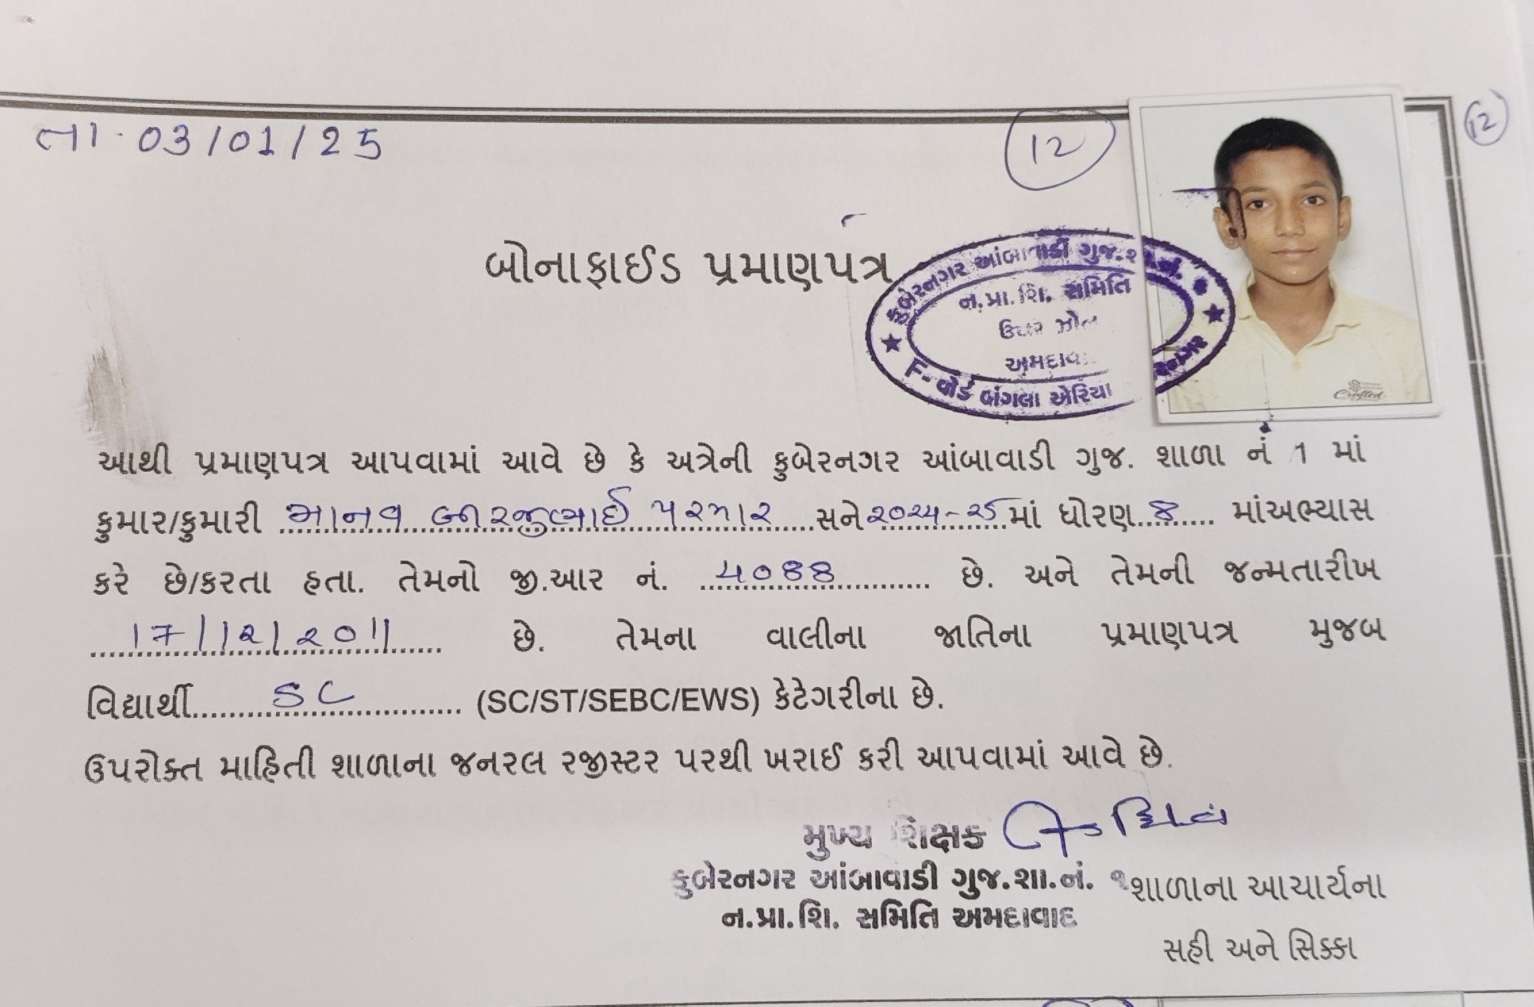 તા. 03/01/25
12
12
બોનાફાઈડ પ્રમાણપત્ર
કુબેરનગર આંબાવાડી ગુજ.શ નં.
ન.પ્રા.શિ. સમિતિ
અમદાવા
F-વોર્ડ બંગલા એરિયા
આથી પ્રમાણપત્ર આપવામાં આવે છે કે અત્રેની કુબેરનગર આંબાવાડી ગુજ. શાળા નં 1 માં
કુમાર/કુમારી માનવ બીરજુભાઈ પરમાર સને ૨૦૨૪-૨૫ માં ધોરણ ૪ માંઅભ્યાસ
કરે છે/કરતા હતા. તેમનો જી.આર નં. 4088 છે. અને તેમની જન્મતારીખ
17/12/2011 છે. તેમના વાલીના જાતિના પ્રમાણપત્ર મુજબ
વિદ્યાર્થી SC (SC/ST/SEBC/EWS) કેટેગરીના છે.
ઉપરોક્ત માહિતી શાળાના જનરલ રજીસ્ટર પરથી ખરાઈ કરી આપવામાં આવે છે.
મુખ્ય શિક્ષક
કુબેરનગર આંબાવાડી ગુજ.શા.નં. ૧
ન.પ્રા.શિ. સમિતિ અમદાવાદ
શાળાના આચાર્યના
સહી અને સિક્કા